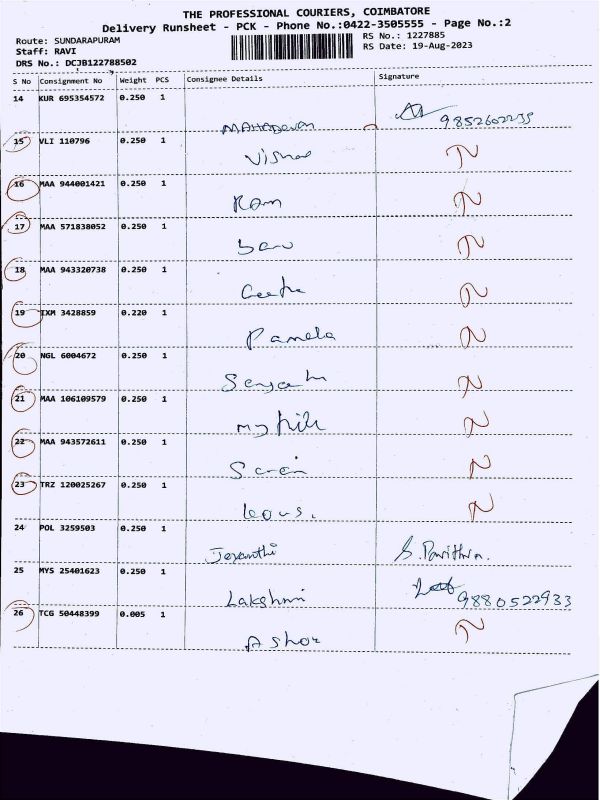 THE PROFESSIONAL COURIERS, COIMBATORE
Delivery Runsheet - PCK - Phone No.:0422-3505555 - Page No.:2
Route: SUNDARAPURAM
RS No.: 1227885
Staff: RAVI
RS Date: 19-Aug-2023
DRS No.: DCJB122788502
S No Consignment No Weight PCS Consignee Details Signature
14 KUR 695354572 0.250 1
MAHADEVAN 9852602235
15 VLI 110796 0.250 1
16 MAA 944001421 0.250 1
Ram
17 MAA 571838052 0.250 1
18 MAA 943320738 0.250 1
Geetha
19 IXM 3428859 0.220 1
Pamela
20 NGL 6004672 0.250 1
21 MAA 106109579 0.250 1
22 MAA 943572611 0.250 1
23 TRZ 120025267 0.250 1
24 POL 3259503 0.250 1
Jeyanthi S. Pavithra.
25 MYS 25401623 0.250 1
Lakshmi 9880522933
26 TCG 50448399 0.005 1
Ashok